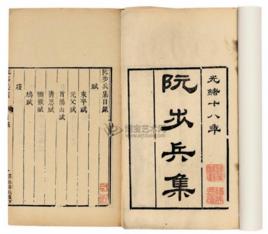 光緒十八年
阮步兵集
阮步兵集目錄
賦
東平賦
元父賦
首陽山賦
清思賦
獼猴賦
鳩賦